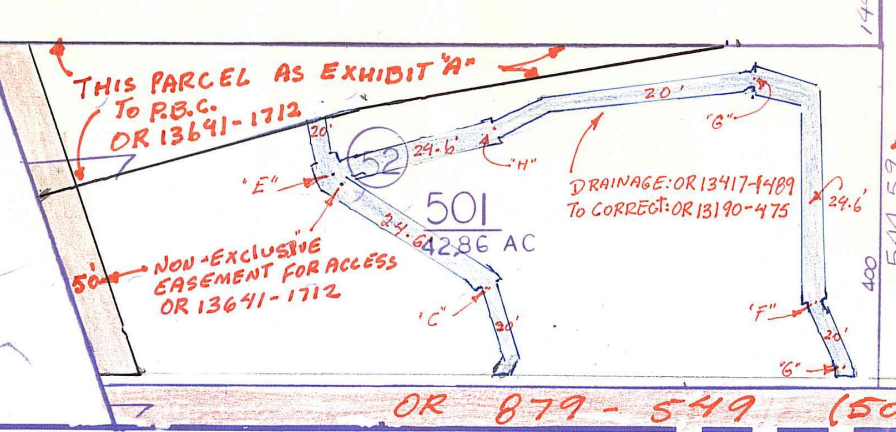 144
THIS PARCEL AS EXHIBIT "A"
TO P.B.C.
OR 13641-1712
20'
52
24.6'
"H"
20'
"G"
"E"
501
42.86 AC
DRAINAGE: OR 13417-1489
TO CORRECT: OR 13190-475
24.6'
24.6'
NON-EXCLUSIVE
EASEMENT FOR ACCESS
OR 13641-1712
50'
400
"C"
"F"
20'
20'
"G"
7
7
OR 879-549 (50